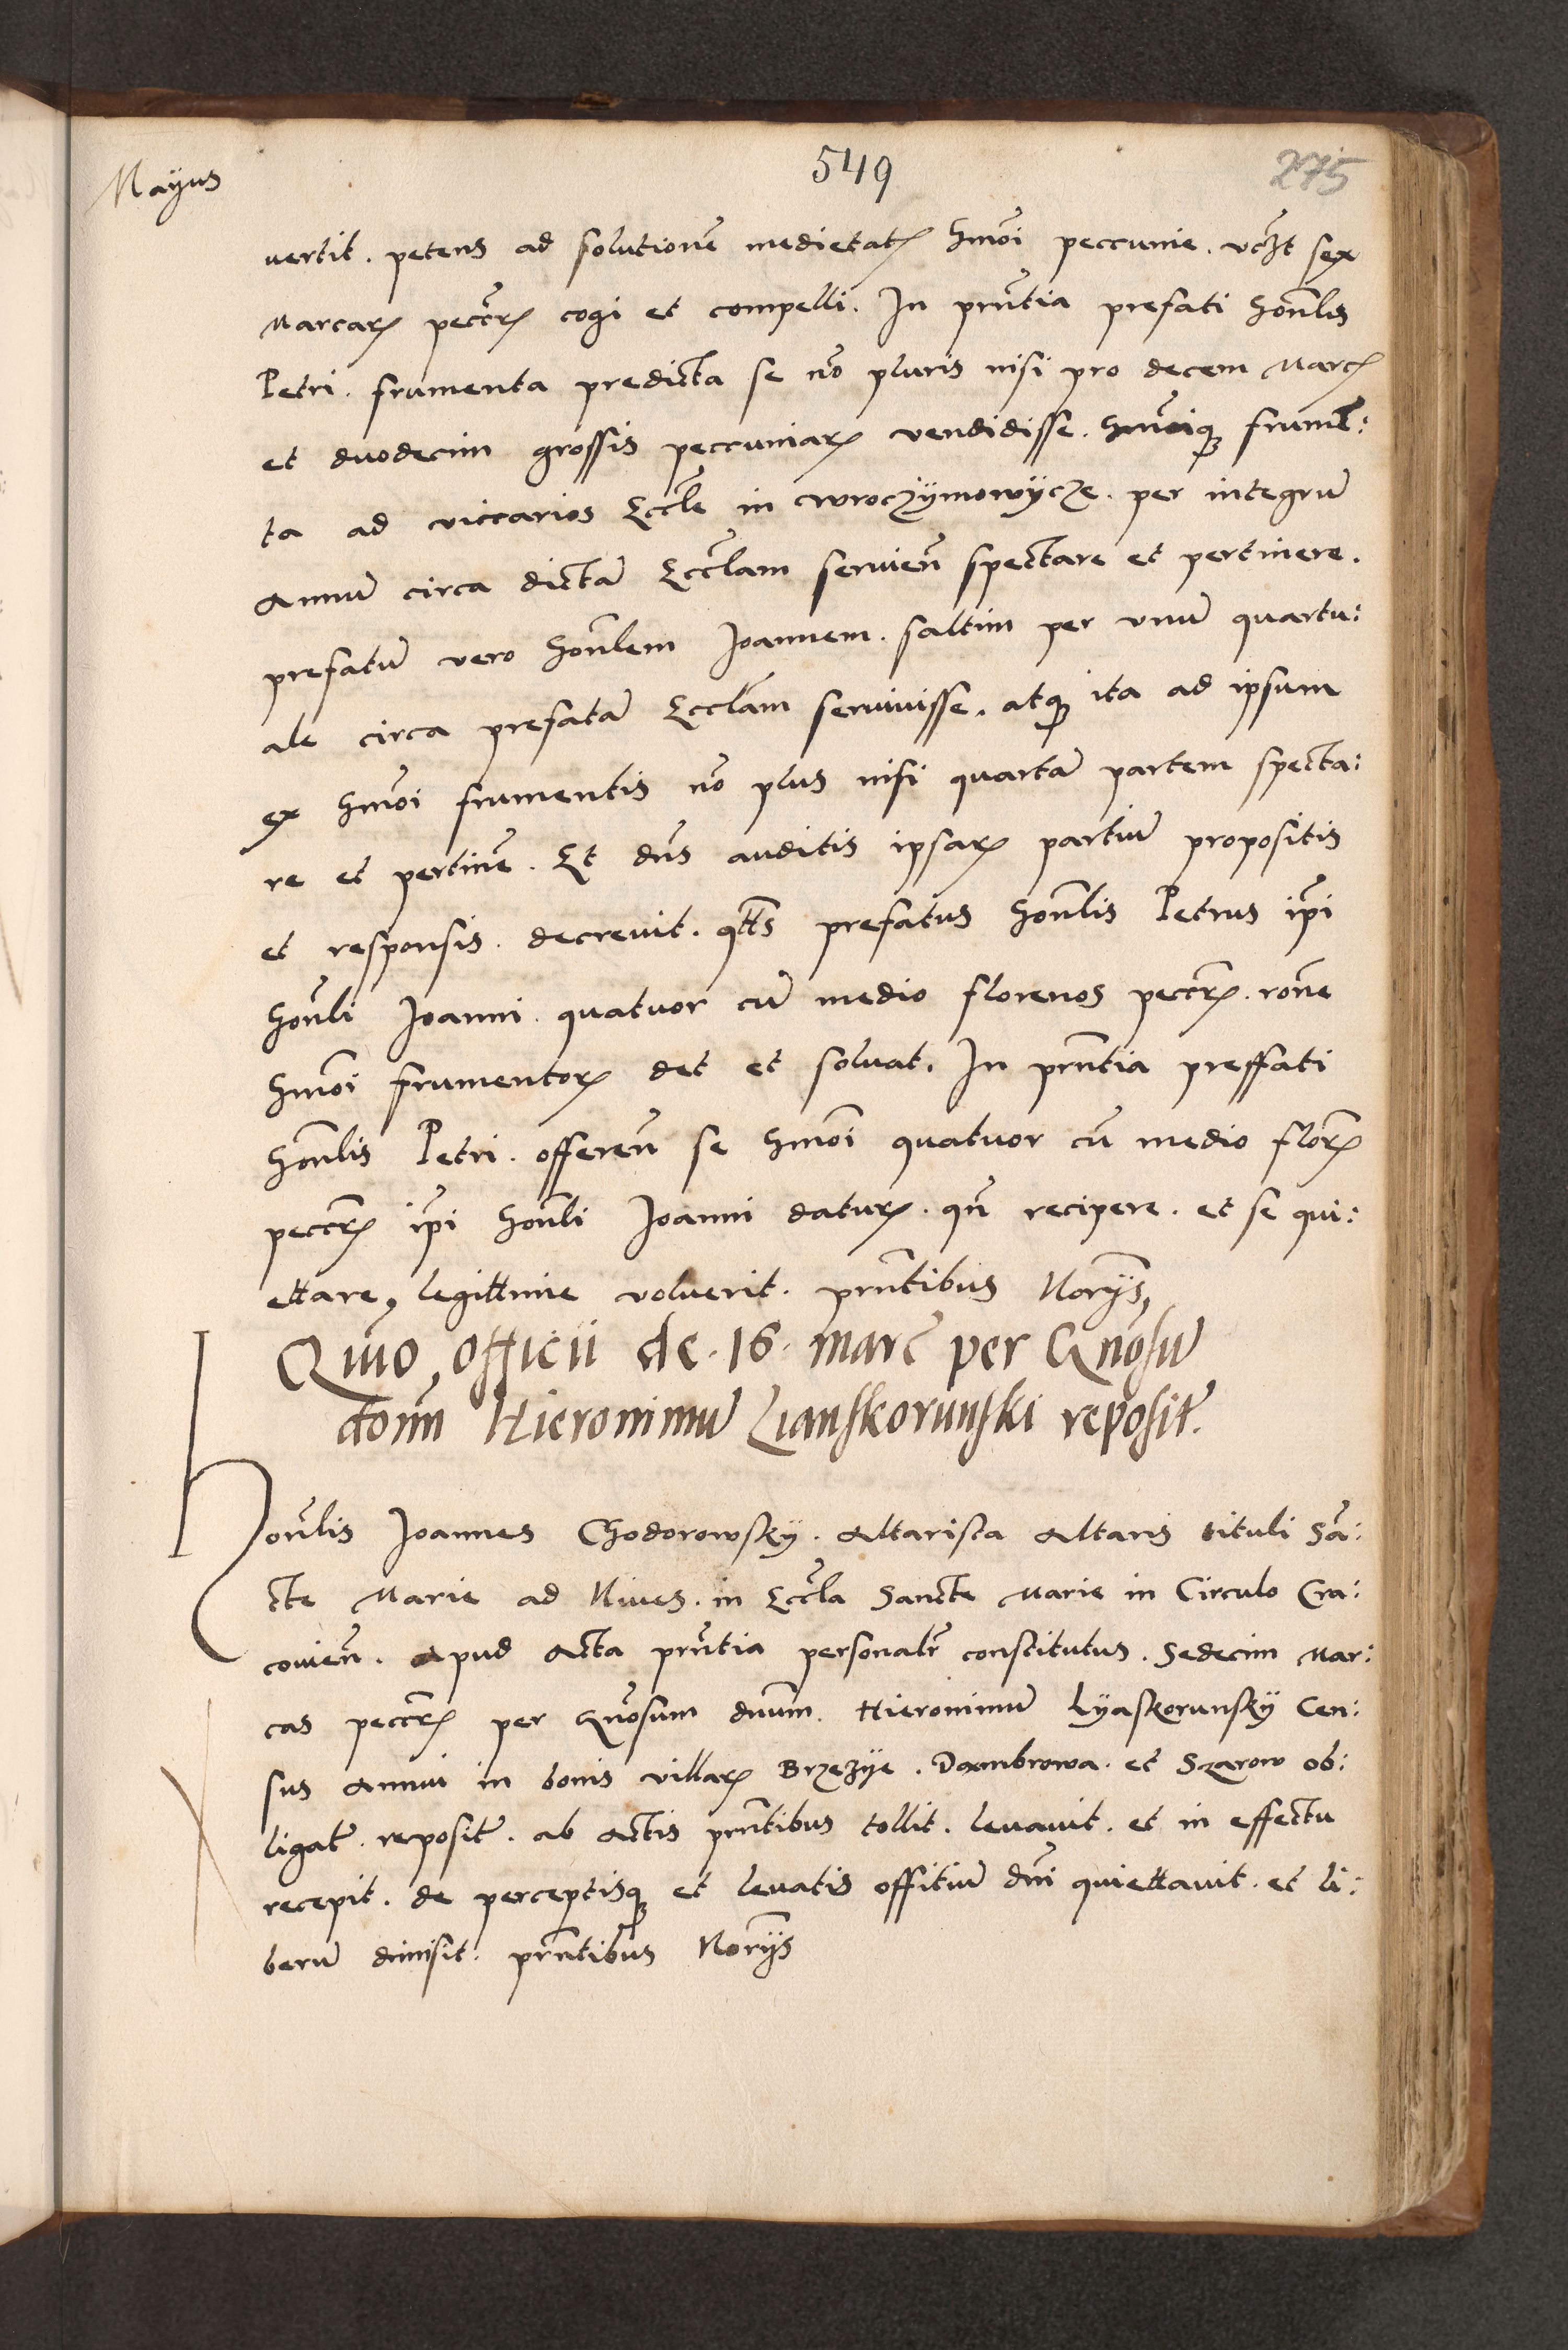 Mayus
549
275
vertit. petens ad solutionē medietatꝭ hmōi peccunie. vcꝫt sex
Marcarꝝ pecctrꝝ cogi et compelli. In prn̄tia prefati honl̄is
Petri. frumenta predicta se nō pluris nisi pro decem Marcꝭ
et duodecim grossis peccuniarꝝ vendidisse. hmōiqꝫ frumē:
ta ad viccarios Eccl̄e in Wroczymowycze. per integrū
Annū circa dictā Eccl̄am servien̄ spectare et pertinere.
prefatū vero honl̄em Joannem. saltim per vnū quartu:
ale circa prefatā Eccl̄am servivisse. atqꝫ ita ad ipsum
ex hmōi frumentis nō plus nisi quartā partem specta:
re et pertinē. Et dn̄s auditis ipsarꝝ partiū propositis
et responsis. decrevit. qtt̄s prefatus honl̄is Petrus ip̄i
honl̄i Joanni. quatuor cū medio florenos pecctrꝝ. rōne
hmōi frumentorꝝ det et solvat. In prn̄tia preffati
honl̄is Petri. offeren̄ se hmōi quatuor cū medio florꝝ
pecctrꝝ ip̄i honl̄i Joanni daturꝝ. qn̄ recipere. et se qui:
ettare, legittime voluerit. prn̄tibus Norijs,
Qui͞o, officii de. 16. marc̄ per Gn̄osū
dom̄ Hieronimū Lianskorunski reposit̄.
Honl̄is Joannes Chodorowsky. Altarista Altaris tituli Sā:
cte Marie ad Nives. in Eccl̄a Sancte Marie in Circulo Cra:
covien̄. Apud Acta prn̄tia personalr̄ constitutus. Sedecim Mar:
cas pecctrꝝ per Gn̄osum dnm̄. Hieronimū Lyaskorunsky Cen:
sus Annui in bonis villarꝝ Brzezye. Dambrowa. et Szarow ob:
ligat̄. reposit̄. ab Actis prn̄tibus tollit. levavit. et in effectu
recepit. de perceptisqꝫ et levatis offitiū dn̄i quiettavit. et li:
berū dimisit. prn̄tibus Norijs